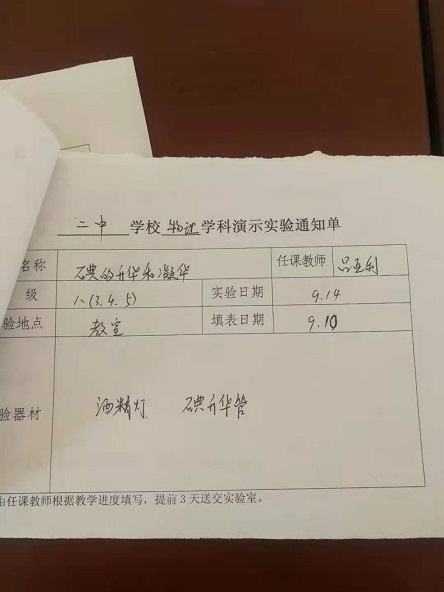 二中 学校 物理 学科演示实验通知单
名称 碘的升华和凝华 任课教师 吕亚利
级 八(3.4.5) 实验日期 9.14
验地点 教室 填表日期 9.10
验器材 酒精灯 碘升华管
由任课教师根据教学进度填写，提前3天送交实验室。